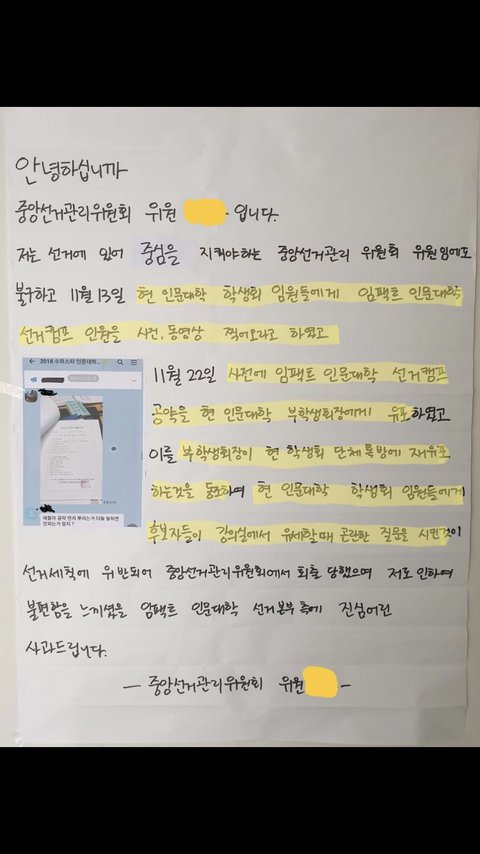 안녕하십니까
중앙선거관리위원회 위원 입니다.
저는 선거에 있어 중심을 지켜야하는 중앙선거관리 위원회 위원임에도
불구하고 11월 13일 현 인문대학 학생회 임원들에게 임팩트 인문대학
선거캠프 인원을 사진, 동영상 찍어오라고 하였고
11월 22일 사전에 임팩트 인문대학 선거캠프
공약을 현 인문대학 부학생회장에게 유포하였고
이를 부학생회장이 현 학생회 단체톡방에 재유포
하는것을 동조하여 현 인문대학 학생회 임원들에게
후보자들이 강의실에서 유세할때 곤란한 질문을 시킨것이
2018 수퍼스타 인문대학...
얘들이 공약 먼저 뿌리는거 다들 말하면
안되는거 알지?
선거세칙에 위반되어 중앙선거관리위원회에서 퇴출 당했으며 저로 인하여
불편함을 느끼셨을 임팩트 인문대학 선거본부 측에 진심어린
사과드립니다.
- 중앙선거관리위원회 위원 -